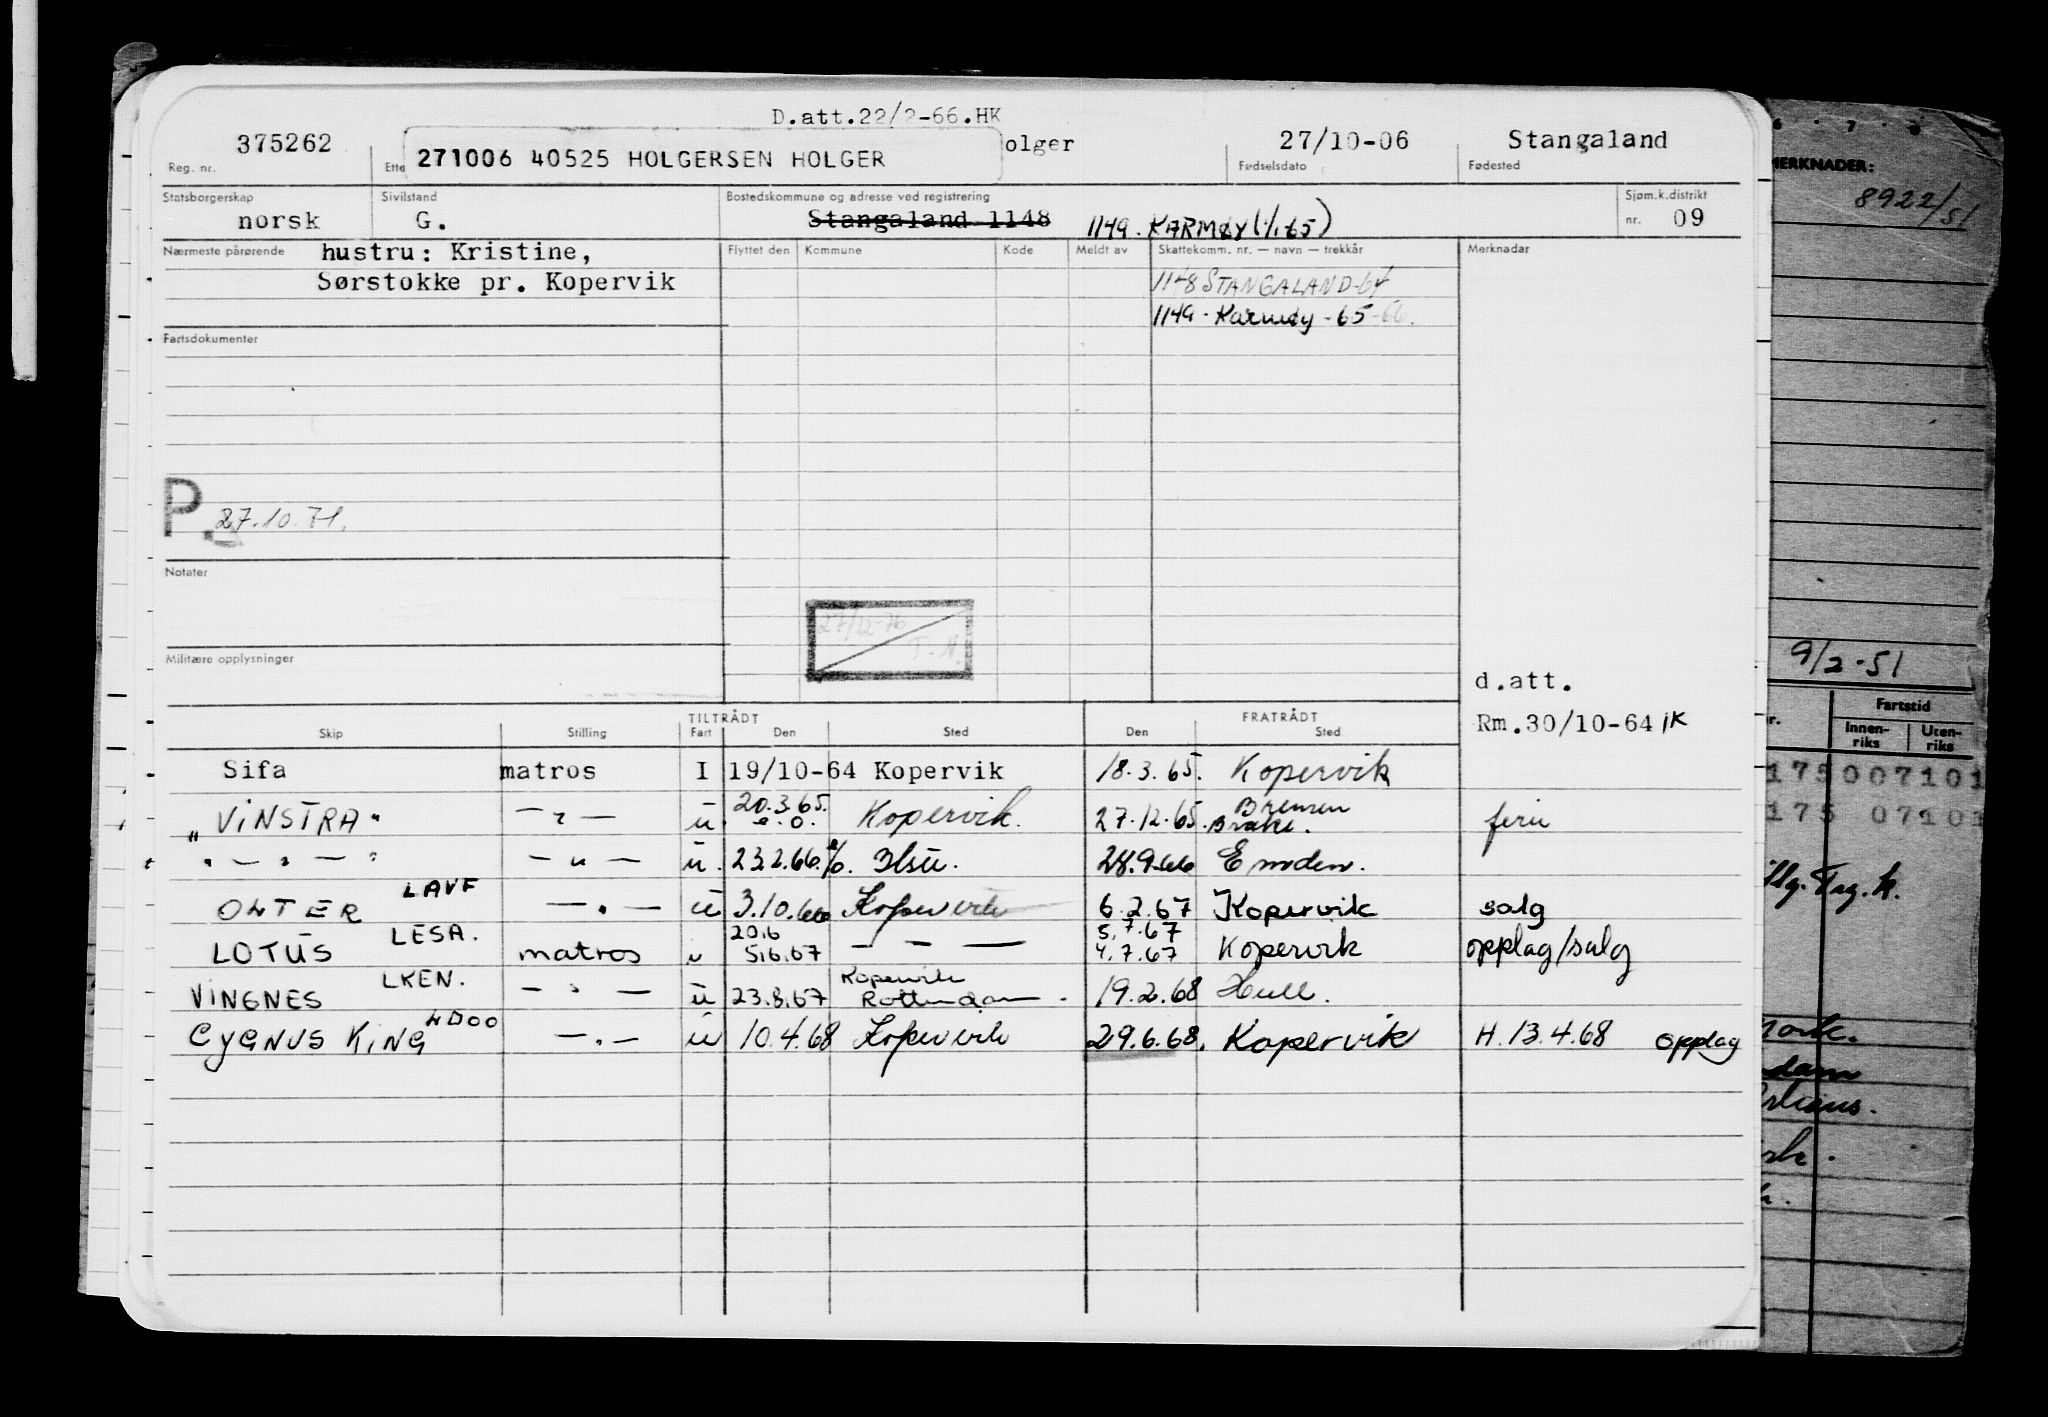 D.att.22/2-66.HK
375262 271006 40525 HOLGERSEN HOLGER olger 27/10-06 Stangaland
Reg. nr. Ette Fødselsdato Fødested
Statsborgerskap Sivilstand Bostedskommune og adresse ved registrering Sjøm.k.distrikt
norsk G. Stangaland 1148 1149. KARMØY (1/1.65) nr. 09
Nærmeste pårørende hustru: Kristine, Flyttet den Kommune Kode Meldt av Skattekomm. nr. — navn — trekkår Merknader
Sørstokke pr. Kopervik 1148 STANGALAND-64
1149 - Karmøy - 65-66.
Fartsdokumenter
P. 27.10.71.
Notater
27/12-76
T.H.
Militære opplysninger
d.att.
Rm.30/10-64 IK
TILTRÅDT FRATRÅDT
Skip Stilling Fart Den Sted Den Sted
Sifa matros I 19/10-64 Kopervik 18.3.65. Kopervik
20.3.65. Bremen
"VINSTRA" — " — u e.o. Kopervik. 27.12.65. Brake. ferie
" — " — " — " — u. 23.2.66. 28.9.66 Emden.
OLTER LAVF — " — u 3.10.66 Kopervik 6.2.67 Kopervik salg
20.6 5.7.67
LOTUS LESA. matros u 5.6.67 — " — 4.7.67 Kopervik opplag/salg
Kopervik
VINGNES LKEN. — " — u 23.8.67 Rotterdam 19.2.68 Hull.
CYGNUS KING LDOO — " — u 10.4.68 Kopervik 29.6.68. Kopervik H. 13.4.68 opplag
6 7 8
MERKNADER:
8922/51
9/2-51
Fartstid
Innen-riks Uten-riks
175007101
175 07101